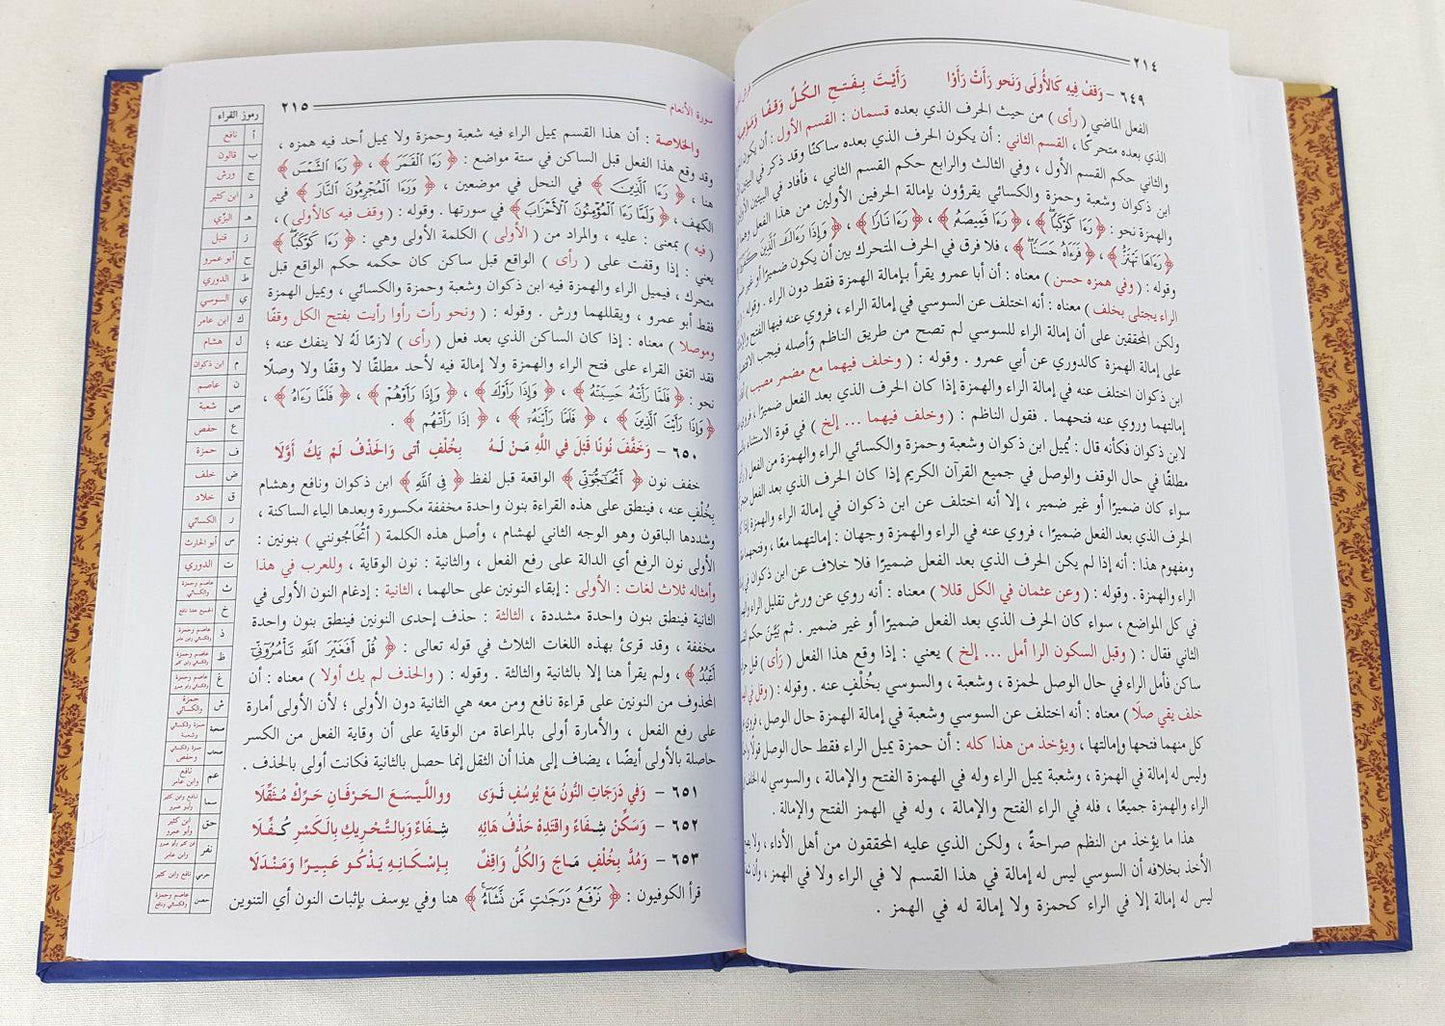 ٢١٤
٦٤٩ - وَقِفْ فِيهِ كَالأُولَى وَنَحْوِ رَأَتْ رَأَوْا رَأَيْتَ بِفَتْحِ الكُلِّ وَقْفًا وَمَوْصِلَا
الفعل الماضي ( رأى ) من حيث الحرف الذي بعده قسمان : القسم الأول : أن يكون
الذي بعده متحركًا ، القسم الثاني : أن يكون الحرف الذي بعده ساكنًا وقد ذكر في البيتين
والثاني حكم القسم الأول ، وفي الثالث والرابع حكم القسم الثاني ، فأفاد في البيتين الأولين
ابن ذكوان وشعبة وحمزة والكسائي يقرؤون بإمالة الحرفين الأولين من هذا الفعل وهما
والهمزة نحو : ﴿ رَءَا كَوْكَبًا ﴾ ، ﴿ رَءَا قَمِيصَهُ ﴾ ، ﴿ رَءَا نَارًا ﴾ ، ﴿ وَإِذَا رَءَاكَ الَّذِينَ كَفَرُوا
﴿ رَءَاهَا تَهْتَزُّ ﴾ ، ﴿ فَرَءَاهُ حَسَنًا ﴾ ، فلا فرق في الحرف المتحرك بين أن يكون ضميرًا أو غير
وقوله : ( وفي همزه حسن ) معناه : أن أبا عمرو يقرأ بإمالة الهمزة فقط دون الراء . وقوله :
الراء يجتلى بخلف ) معناه : أنه اختلف عن السوسي في إمالة الراء ، فروي عنه فيها الفتح
ولكن المحققين على أن إمالة الراء للسوسي لم تصح من طريق الناظم وَأصله فيجب
على إمالة الهمزة كالدوري عن أبي عمرو . وقوله : ( وخلف فيهما مع مضمر مصيب )
ابن ذكوان اختلف عنه في إمالة الراء والهمزة إذا كان الحرف الذي بعد الفعل ضميرًا ، فروي
إمالتهما وروي عنه فتحهما . فقول الناظم : ( وخلف فيهما ... إلخ ) في قوة الاستثناء
لابن ذكوان فكأنه قال : يُميل ابن ذكوان وشعبة وحمزة والكسائي الراء والهمزة من الفعل
مطلقًا في حال الوقف والوصل في جميع القرآن الكريم إذا كان الحرف الذي بعد الفعل
سواء كان ضميرًا أو غير ضمير ، إلا أنه اختلف عن ابن ذكوان في إمالة الراء والهمزة
الحرف الذي بعد الفعل ضميرًا ، فروي عنه في الراء والهمزة وجهان : إمالتهما معًا ، وفتحهما
ومفهوم هذا : أنه إذا لم يكن الحرف الذي بعد الفعل ضميرًا فلا خلاف عن ابن ذكوان في
الراء والهمزة . وقوله : ( وعن عثمان في الكل قللا ) معناه : أنه روي عن ورش تقليل الراء
في كل المواضع ، سواء كان الحرف الذي بعد الفعل ضميرًا أو غير ضمير . ثم بيَّن حكم
الثاني فقال : ( وقبل السكون الرا أمل ... إلخ ) يعني : إذا وقع هذا الفعل ( رأى ) قبل
ساكن فأمل الراء في حال الوصل لحمزة ، وشعبة ، والسوسي بخُلْفٍ عنه . وقوله : ( وقل في
خلف يقي صلًا ) معناه : أنه اختلف عن السوسي وشعبة في إمالة الهمزة حال الوصل ، فروي
كل منهما فتحها وإمالتها ، ويؤخذ من هذا كله : أن حمزة يميل الراء فقط حال الوصل قولًا
وليس له إمالة في الهمزة ، وشعبة يميل الراء وله في الهمزة الفتح والإمالة ، والسوسي له
الراء والهمزة جميعًا ، فله في الراء الفتح والإمالة ، وله في الهمز الفتح والإمالة .
هذا ما يؤخذ من النظم صراحةً ، ولكن الذي عليه المحققون من أهل الأداء ،
الأخذ بخلافه أن السوسي ليس له إمالة في هذا القسم لا في الراء ولا في الهمز ، وأن
ليس له إمالة إلا في الراء كحمزة ولا إمالة له في الهمز .
سورة الأنعام ٢١٥
والخلاصة : أن هذا القسم يميل الراء فيه شعبة وحمزة ولا يميل أحد فيه همزه ،
وقد وقع هذا الفعل قبل الساكن في ستة مواضع : ﴿ رَءَا الْقَمَرَ ﴾ ، ﴿ رَءَا الشَّمْسَ ﴾
هنا ، ﴿ رَءَا الَّذِينَ ﴾ في النحل في موضعين ، ﴿ وَرَءَا الْمُجْرِمُونَ النَّارَ ﴾ في
الكهف ، ﴿ وَلَمَّا رَءَا الْمُؤْمِنُونَ الْأَحْزَابَ ﴾ في سورتها . وقوله : ( وقف فيه كالأولى ) ،
( فيه ) بمعنى : عليه ، والمراد من ( الأولى ) الكلمة الأولى وهي : ﴿ رَءَا كَوْكَبًا ﴾
يعني : إذا وقفت على ( رأى ) الواقع قبل ساكن كان حكمه حكم الواقع قبل
متحرك ، فيميل الراء والهمزة فيه ابن ذكوان وشعبة وحمزة والكسائي ، ويميل الهمزة
فقط أبو عمرو ، ويقللهما ورش . وقوله : ( ونحو رأت رأوا رأيت بفتح الكل وقفًا
وموصلا ) معناه : إذا كان الساكن الذي بعد فعل ( رأى ) لازمًا لَهُ لا ينفك عنه ؛
فقد اتفق القراء على فتح الراء والهمزة ولا إمالة فيه لأحد مطلقًا لا وقفًا ولا وصلًا
نحو : ﴿ فَلَمَّا رَأَتْهُ حَسِبَتْهُ ﴾ ، ﴿ وَإِذَا رَأَوْكَ ﴾ ، ﴿ وَإِذَا رَأَوْهُمْ ﴾ ، ﴿ فَلَمَّا رَءَاهُ ﴾ ،
﴿ وَإِذَا رَأَيْتَ الَّذِينَ ﴾ ، ﴿ فَلَمَّا رَأَيْنَهُۥ ﴾ ، ﴿ إِذَا رَأَتْهُم ﴾ .
٦٥٠ - وَخَفَّفَ نُونًا قَبْلَ فِي اللَّهِ مَنْ لَهُ بِخُلْفٍ أَتَى وَالحَذْفُ لَمْ يَكُ أَوَّلَا
خفف نون ﴿ أَتُحَاجُّونِّي ﴾ الواقعة قبل لفظ ﴿ فِى اللَّهِ ﴾ ابن ذكوان ونافع وهشام
بِخُلْفٍ عنه ، فينطق على هذه القراءة بنون واحدة مخففة مكسورة وبعدها الياء الساكنة ،
وشددها الباقون وهو الوجه الثاني لهشام ، وأصل هذه الكلمة ( أَتُحَاجُّونني ) بنونين :
الأولى نون الرفع أي الدالة على رفع الفعل ، والثانية : نون الوقاية ، وللعرب في هذا
وأمثاله ثلاث لغات : الأولى : إبقاء النونين على حالهما ، الثانية : إدغام النون الأولى في
الثانية فينطق بنون واحدة مشددة ، الثالثة : حذف إحدى النونين فينطق بنون واحدة
مخففة ، وقد قرئ بهذه اللغات الثلاث في قوله تعالى : ﴿ قُلْ أَفَغَيْرَ اللَّهِ تَأْمُرُونِّي
أَعْبُدُ ﴾ ، ولم يقرأ هنا إلا بالثانية والثالثة . وقوله : ( والحذف لم يك أولا ) معناه : أن
المحذوف من النونين على قراءة نافع ومن معه هي الثانية دون الأولى ؛ لأن الأولى أمارة
على رفع الفعل ، والأمارة أولى بالمراعاة من الوقاية على أن وقاية الفعل من الكسر
حاصلة بالأولى أيضًا ، يضاف إلى هذا أن الثقل إنما حصل بالثانية فكانت أولى بالحذف .
٦٥١ - وَفِي دَرَجَاتِ النُّونُ مَعْ يُوسُفٍ ثَوَى وواللَّيْسَعَ الحَرْفَانِ حَرِّكْ مُثَقِّلَا
٦٥٢ - وَسَكِّنْ شِفَاءً واقتَدِهْ حَذْفُ هَائِهِ شِفَاءً وَبِالتَّحْرِيكِ بِالكَسْرِ كُفِّلَا
٦٥٣ - وَمُدَّ بِخُلْفٍ مَاجَ وَالكُلُّ وَاقِفٌ بِإِسْكَانِهِ يَذْكُو عَبِيرًا وَمَنْدَلَا
قرأ الكوفيون : ﴿ نَرْفَعُ دَرَجَاتٍ مَّن نَّشَاءُ ﴾ هنا وفي يوسف بإثبات النون أي التنوين
رموز القراء
أ نافع
ب قالون
ج ورش
د ابن كثير
هـ البزّي
ز قنبل
ح أبو عمرو
ط الدوري
ي السوسي
ك ابن عامر
ل هشام
م ابن ذكوان
ن عاصم
ص شعبة
ع حفص
ف حمزة
ض خلف
ق خلاد
ر الكسائي
س أبو الحارث
ت الدوري
ث عاصم وحمزة والكسائي
خ الجميع عدا نافع
ذ
ظ
غ
ش حمزة والكسائي
صحبة حمزة والكسائي وشعبة
صحاب حمزة والكسائي وحفص
عم نافع وابن عامر
سما نافع وابن كثير وأبو عمرو
حق ابن كثير وأبو عمرو
نفر ابن كثير وأبو عمرو وابن عامر
حرمي نافع وابن كثير
حصن عاصم وحمزة والكسائي ونافع